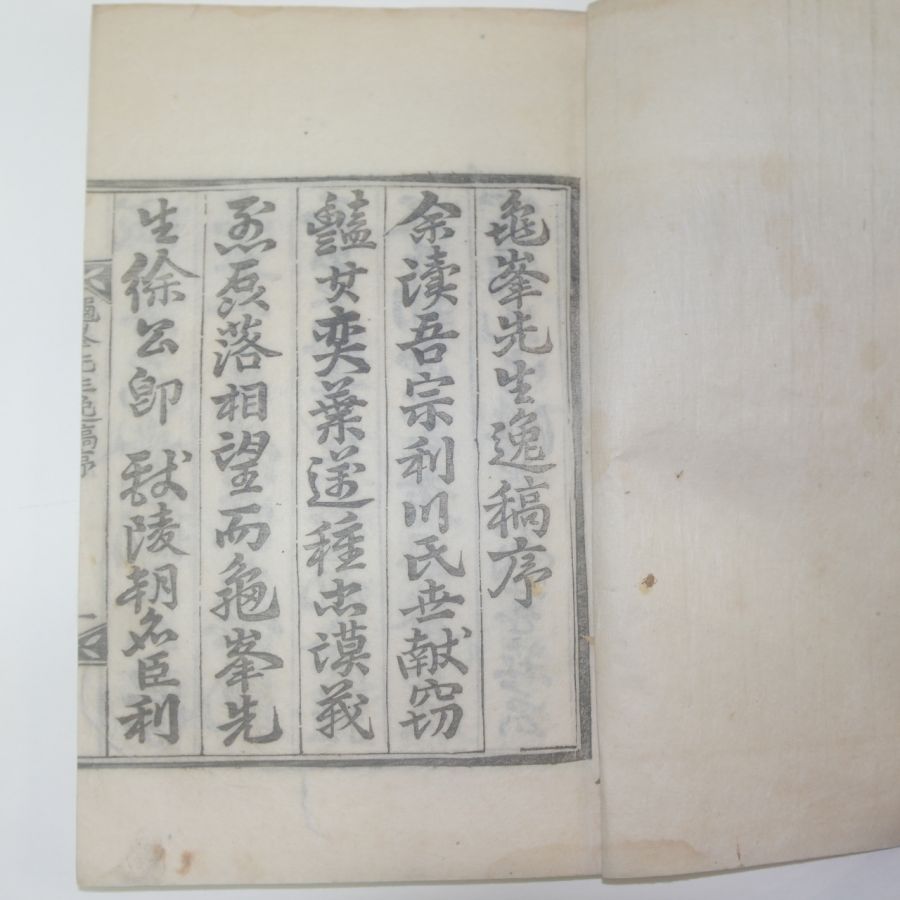 龜峯先生逸稿序
余讀吾宗利川氏世献窃
豔其奕葉遞種忠謨義
烈磊落相望而龜峯先
生徐公卽 獻陵朝名臣利
龜峯先生逸稿序 一